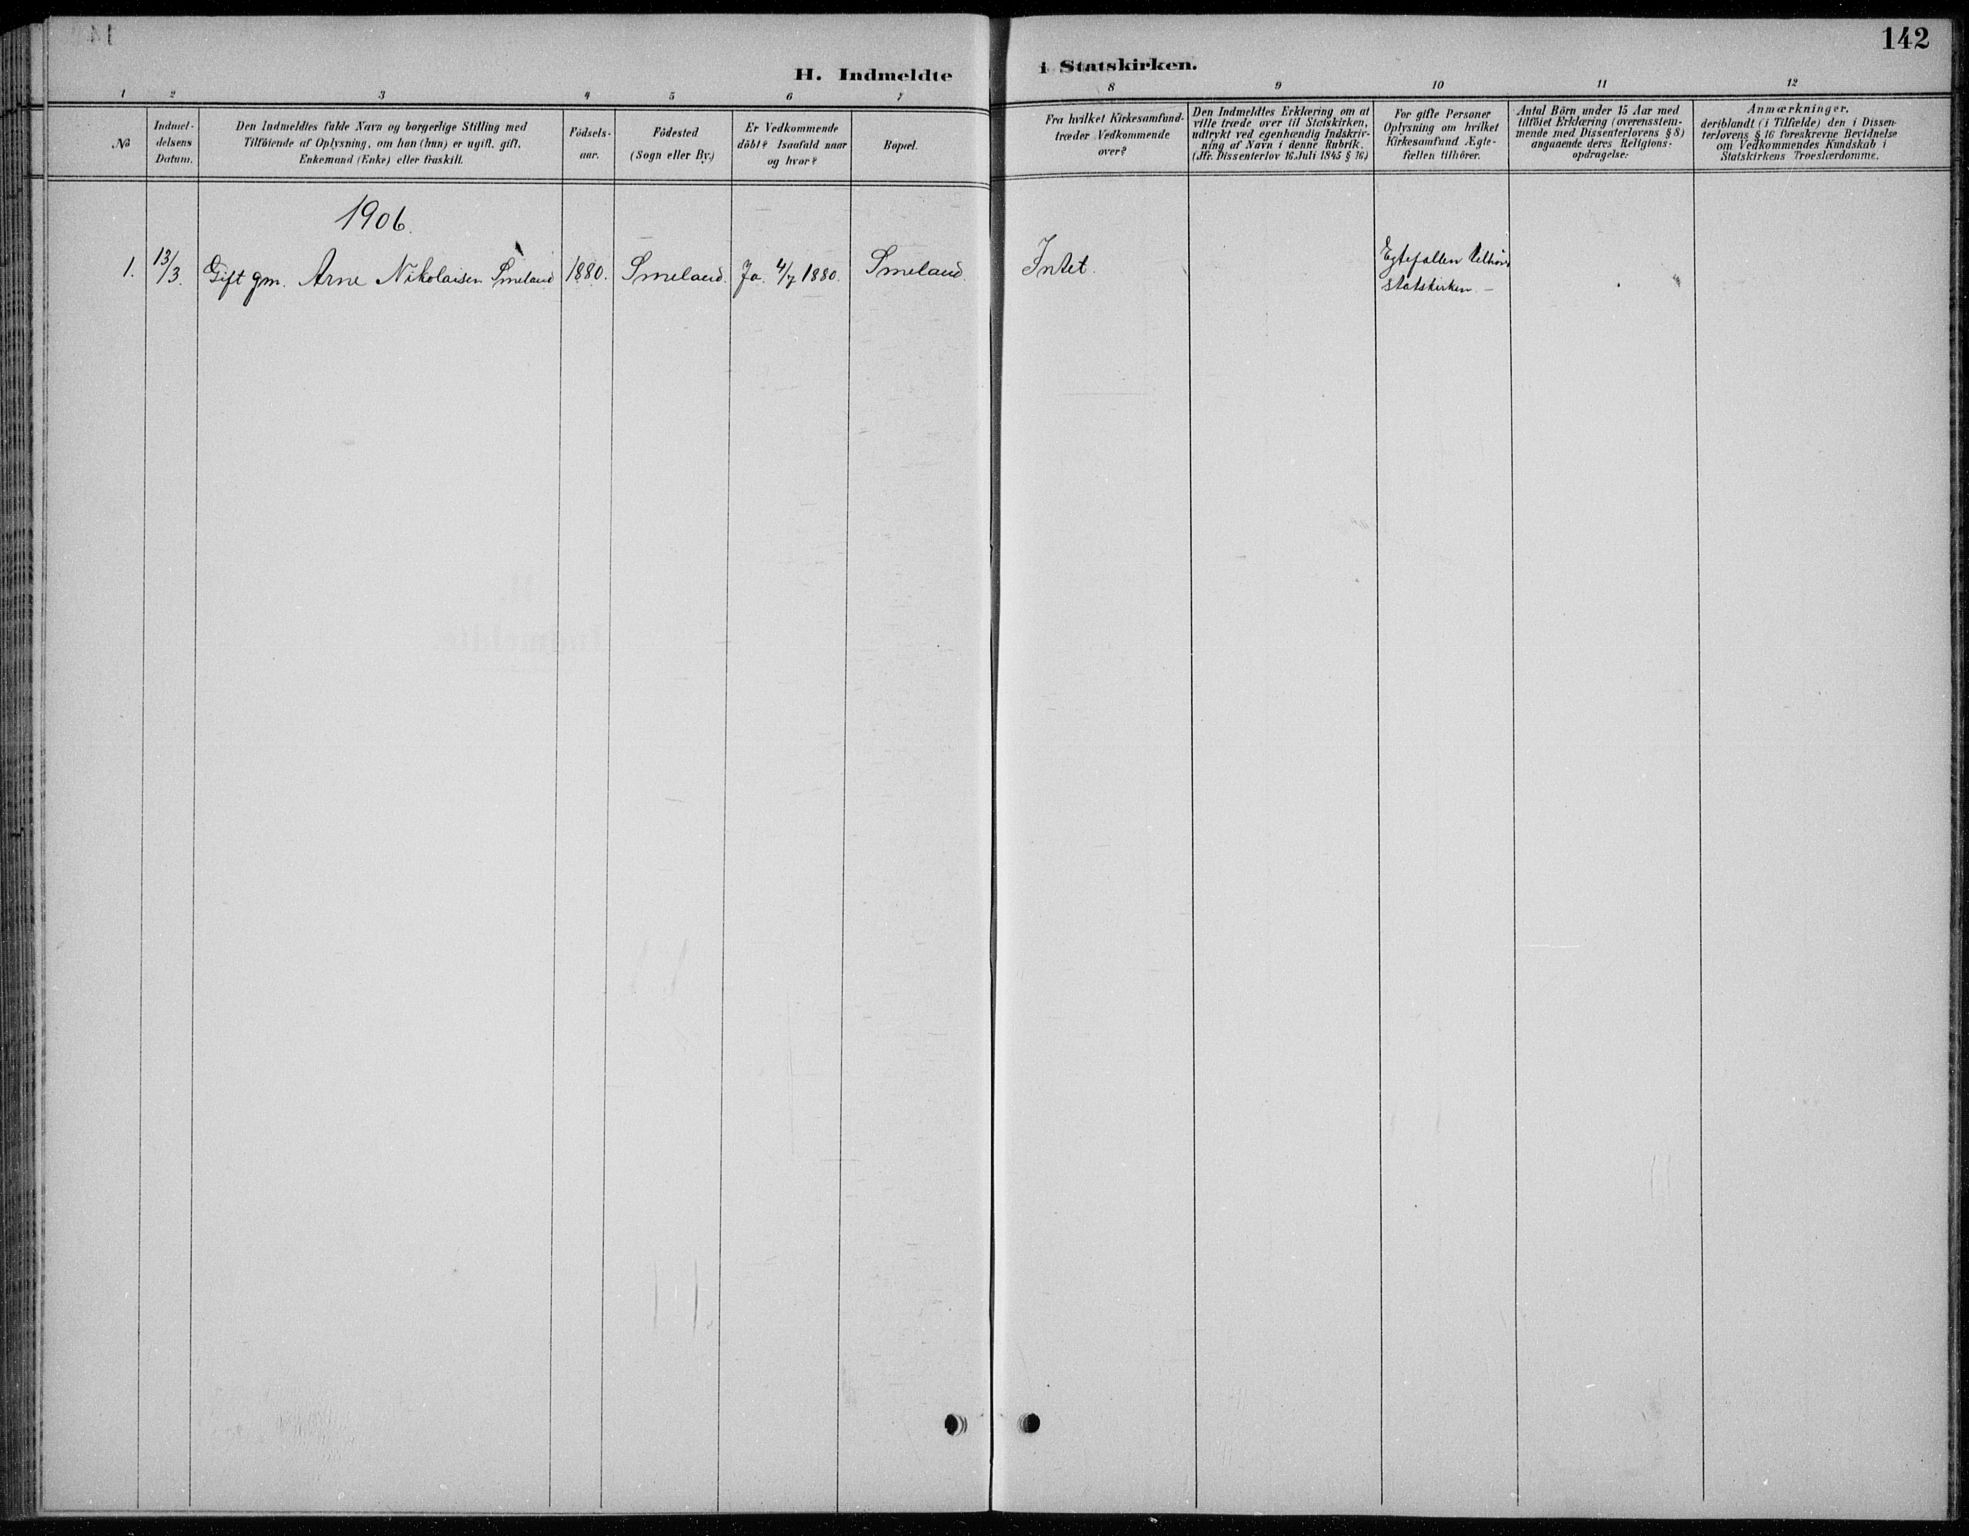 142
H. Indmeldte i Statskirken.
1 2 3 4 5 6 7 8 9 10 11 12
№
Indmel-
delsens
Datum.
Den Indmeldtes fulde Navn og borgerlige Stilling med
Tilføiende af Oplysning, om han (hun) er ugift, gift,
Enkemand (Enke) eller fraskilt.
Födsels-
aar.
Födested
(Sogn eller By.)
Er Vedkommende
döbt? Isaafald naar
og hvor?
Bopæl.
Fra hvilket Kirkesamfund
træder Vedkommende
over?
Den Indmeldtes Erklæring om at
ville træde over til Statskirken,
udtrykt ved egenhændig Indskriv-
ning af Navn i denne Rubrik.
(Jfr. Dissenterlov 16.Juli 1845 § 16)
For gifte Personer
Oplysning om hvilket
Kirkesamfund Ægte-
fællen tilhörer.
Antal Börn under 15 Aar med
tilföiet Erklæring (overensstem-
mende med Dissenterlovens § 8)
angaaende deres Religions-
opdragelse.
Anmærkninger.
deriblandt (i Tilfælde) den i Dissen-
terlovens § 16 foreskrevne Bevidnelse
om Vedkommendes Kundskab i
Statskirkens Troeslærdomme.
1906.
1. 13/3. Gift gm. Arne Nikolaisen Smeland 1880. Smeland. Ja. 4/7 1880. Smeland. Intet. Egtefællen tilhører
statskirken. –